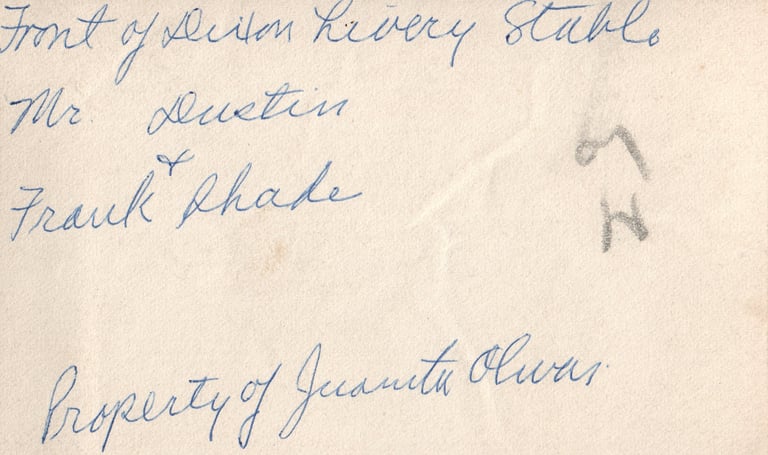 Front of Dixon Livery Stable
Mr. Dustin
+
Frank Shade
Property of Juanita Olivas